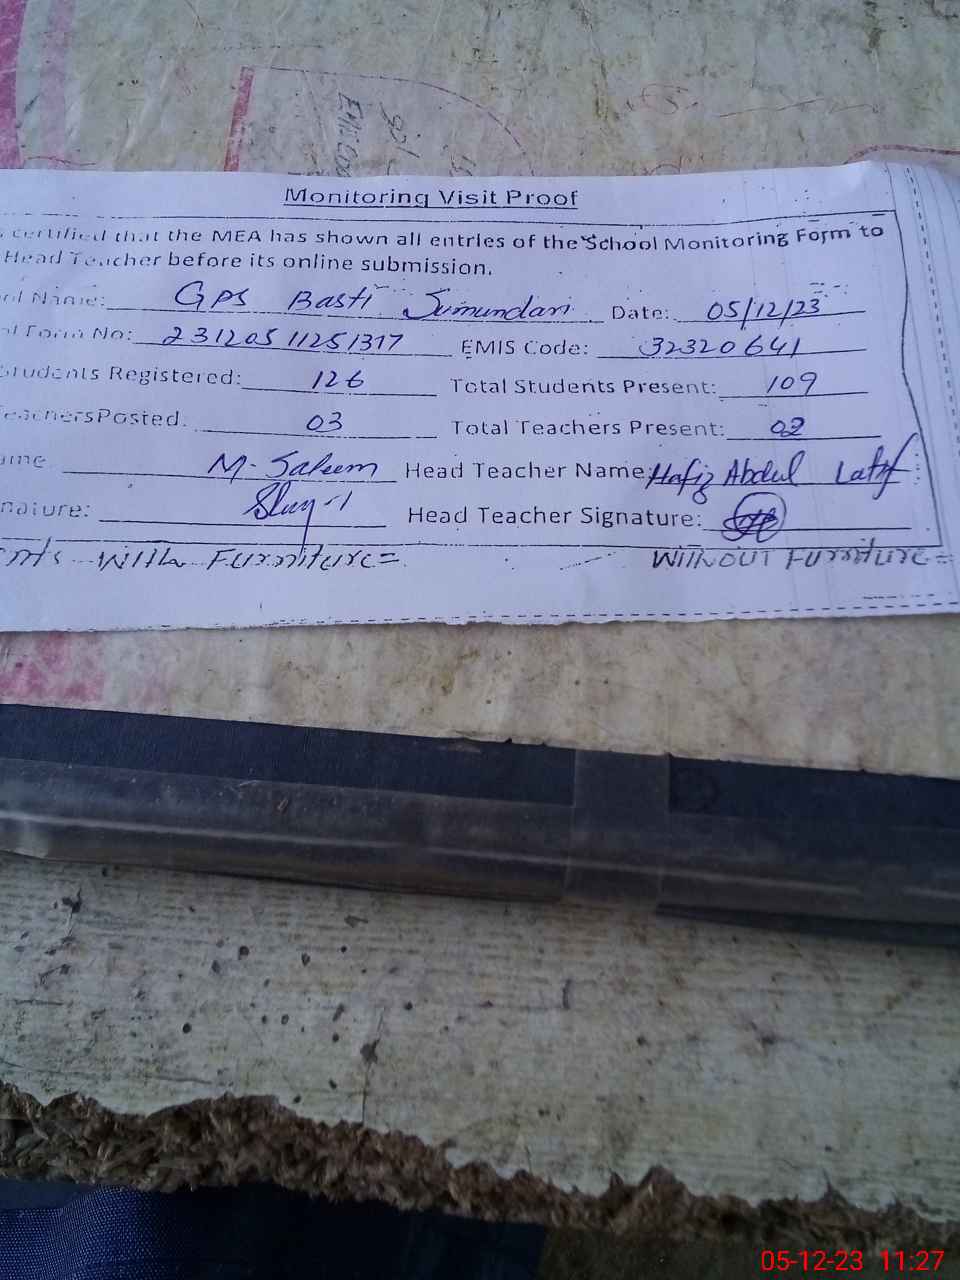 EMIS Coo
Monitoring Visit Proof
certified that the MEA has shown all entries of the School Monitoring Form to
Head Teacher before its online submission.
Name: GPS Basti Sumundari Date: 05/12/23
Form No: 231205 11251317 EMIS Code: 32320641
Students Registered: 126 Total Students Present: 109
Teachers Posted: 03 Total Teachers Present: 02
ame M. Saleem Head Teacher Name: Hafiz Abdul Latif
nature: Head Teacher Signature:
nts With Furniture= WITHOUT FURNITURE=
05-12-23 11:27